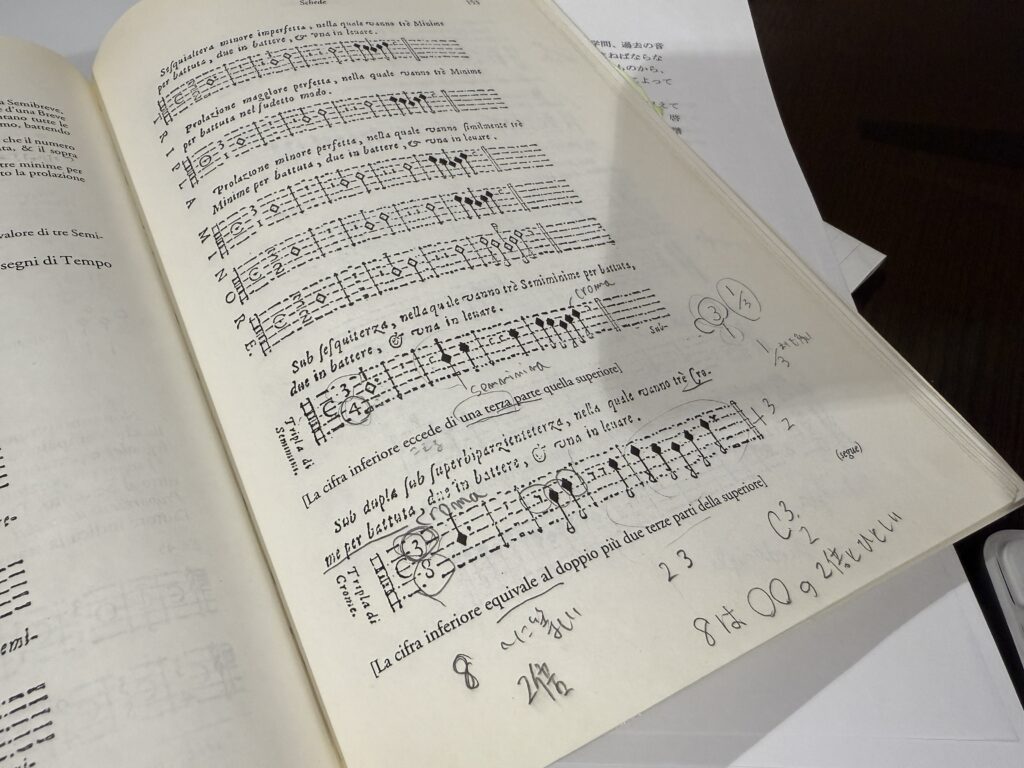 Schede
155
Sesquialtera minore imperfetta, nella quale vanno trè Minime
per battuta, due in battere, & una in levare.
Prolazione maggiore perfetta, nella quale vanno trè Minime
per battuta nel sudetto modo.
Prolazione minore perfetta, nella quale vanno similmente trè
Minime per battuta, due in battere, & una in levare.
TRIPLA MINORE.
Sub sesquiterza, nella quale vanno trè Semiminime per battuta,
due in battere, & una in levare.
croma
Sub-
Tripla di
Semiminime.
C 3
4
semimina
[La cifra inferiore eccede di una terza parte quella superiore]
3
1/3
1/3
Sub dupla sub superbiparzienteterza, nella quale vanno trè Cro-
me per battuta, due in battere, & una in levare.
croma
Tripla di
Crome.
C 3
8
3
2
(segue)
[La cifra inferiore equivale al doppio più due terze parti della superiore]
2 3
C 3
2
8
2倍
8は〇〇の2倍とひとしい
a Semibreve,
e d'una Breve
tano tutte le
mo, battendo
che il numero
ta, & il sopra
tre minime per
to la prolazione
valore di tre Semi-
segni di Tempo
emi-
学問、過去の音
ねばならな
ものから、
によって